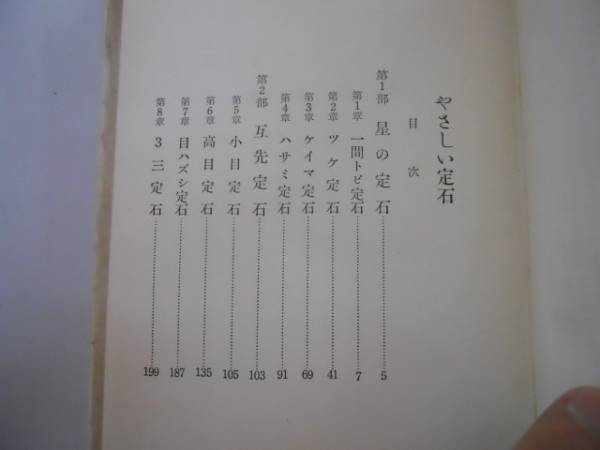 やさしい定石
目次
第1部 星の定石……5
第1章 一間トビ定石……7
第2章 ツケ定石……41
第3章 ケイマ定石……69
第4章 ハサミ定石……91
第2部 互先定石……103
第5章 小目定石……105
第6章 高目定石……135
第7章 目ハズシ定石……187
第8章 3三定石……199